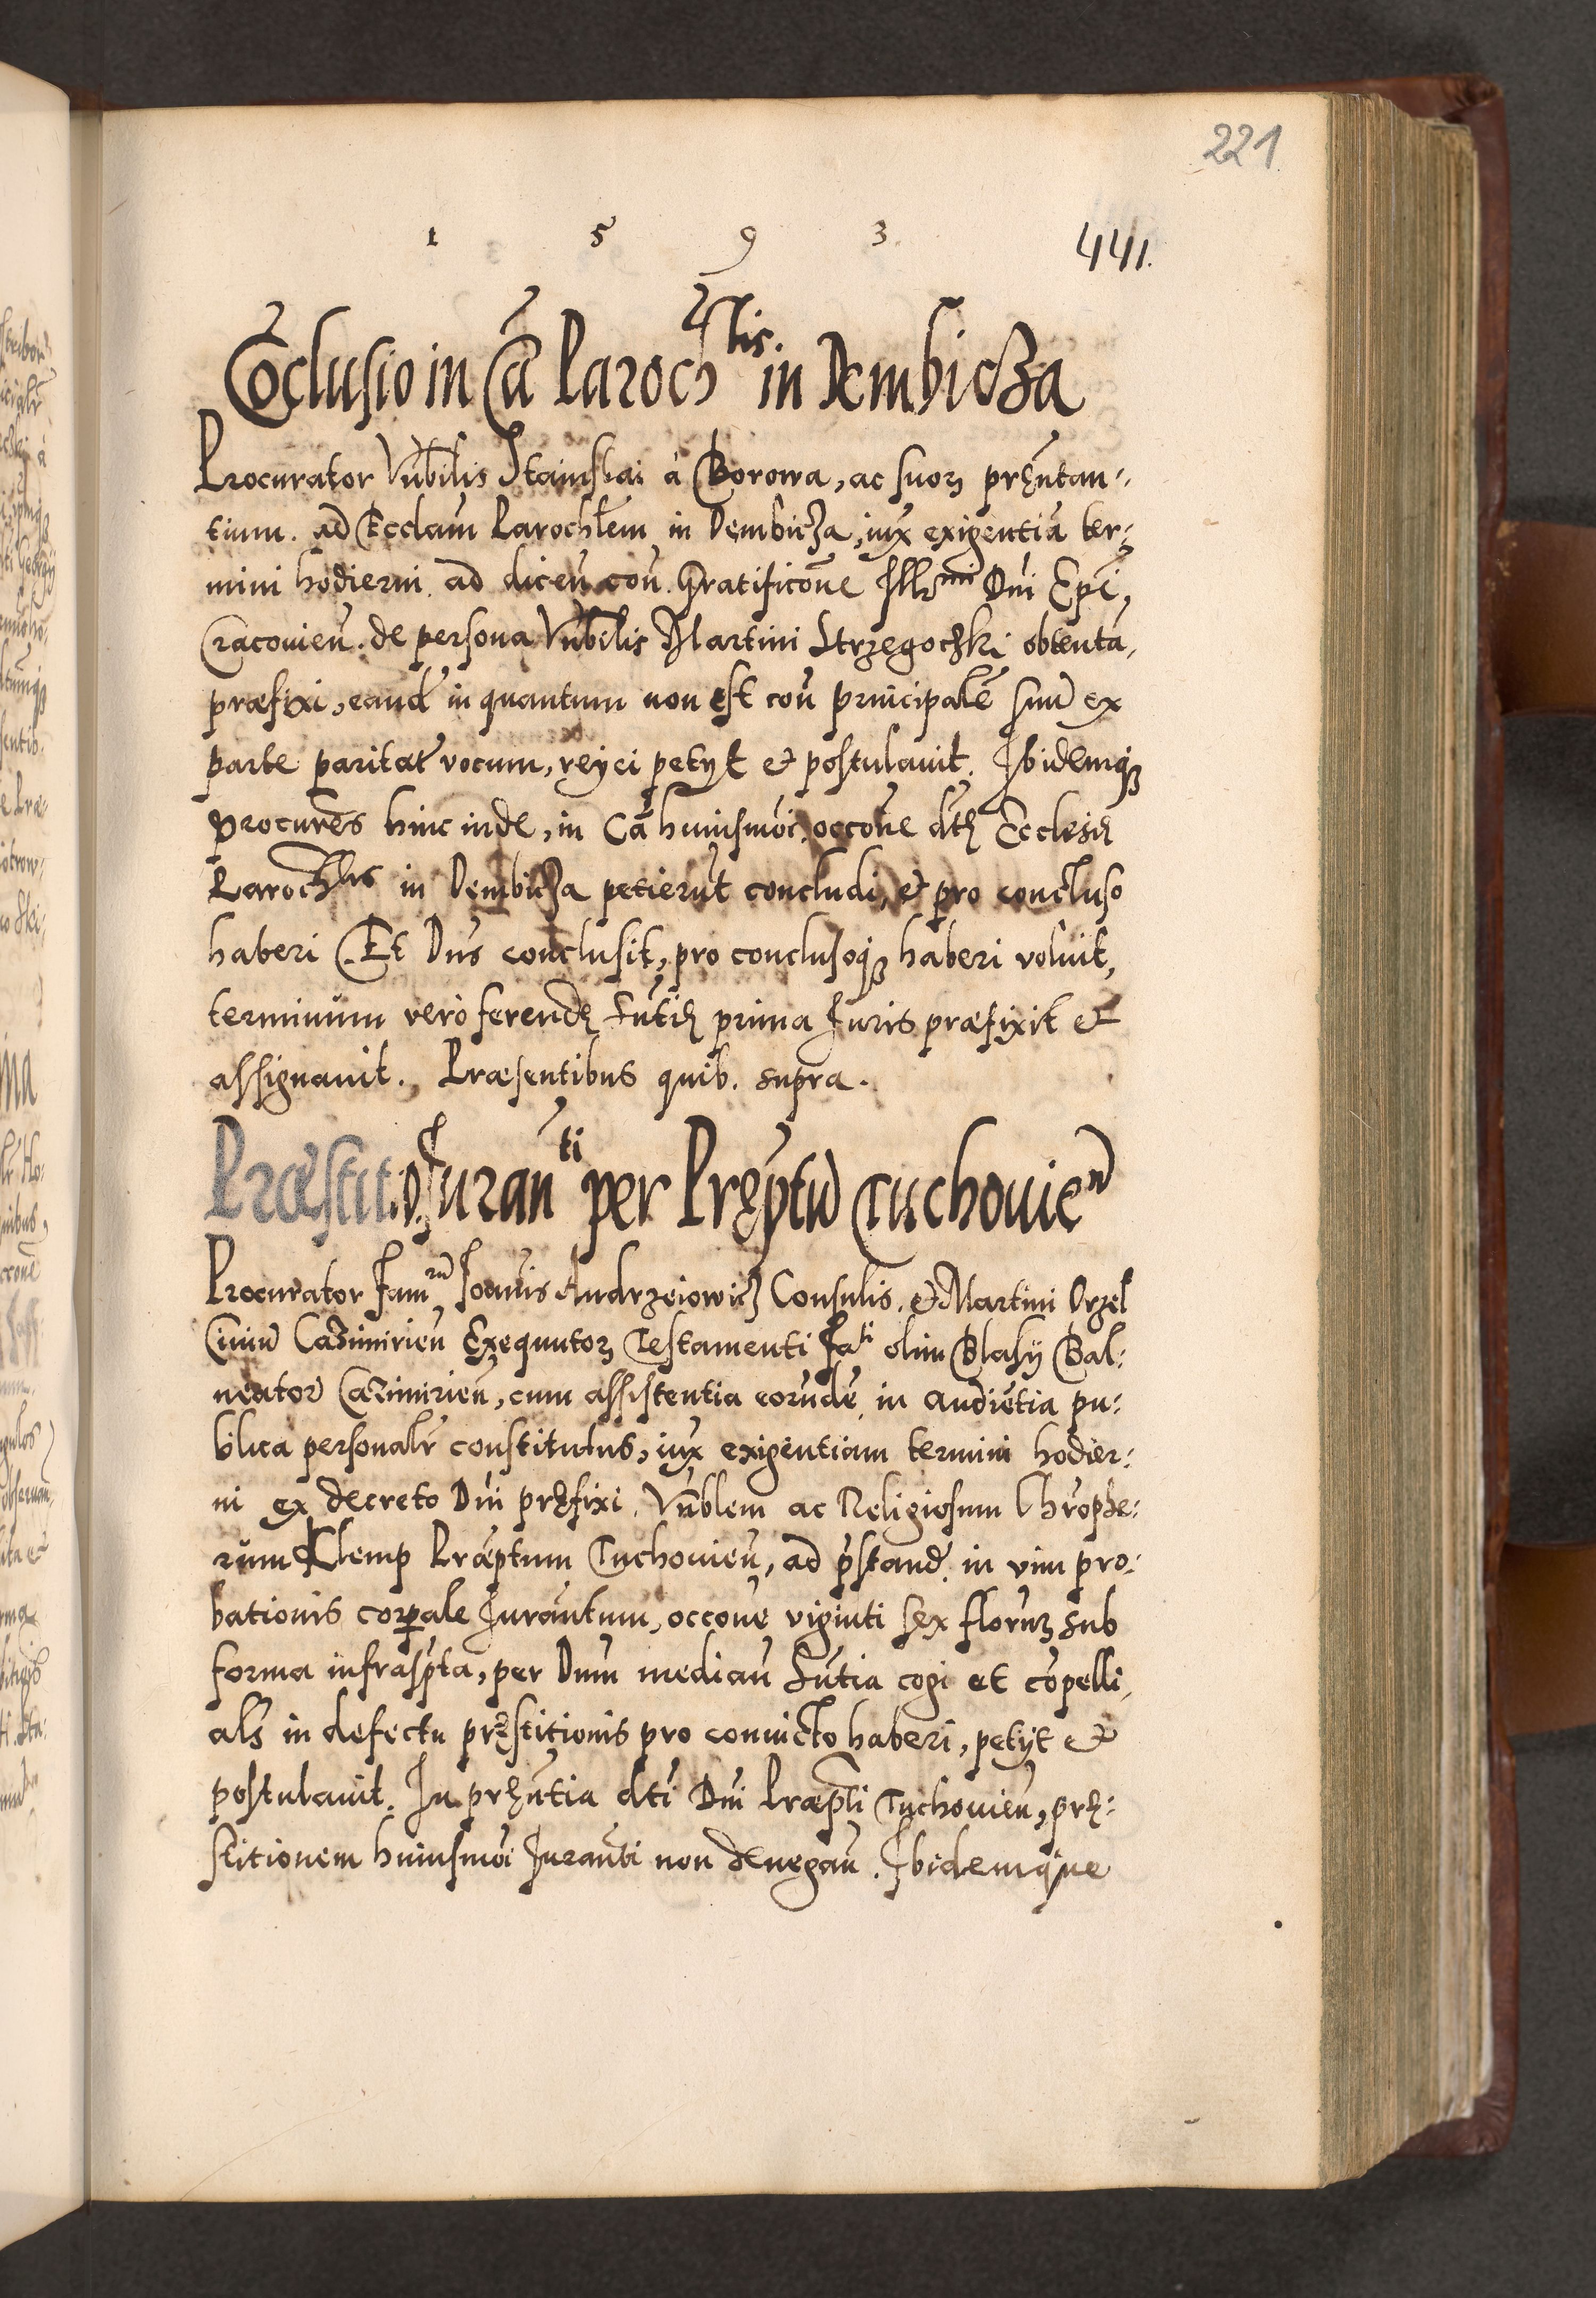 221
1 5 9 3
441.
Cōclusio in Cā Paroch͞lis. in Dembicza
Procurator Vn̄bilis Stanislai à Borowa, ac suoꝝ prēn̄tan⸗
tium. ad Ecclām Paroch͞lem in Dembicza, iux̄ exigentiā ter⸗
mini hodierni ad dicen̄ con̄. Gratificon̄e Illr͞mi Dn̄i Ep̄i,
Cracouien̄. de persona Vn̄bilis Martini Strzegoczki obtentā,
præfixi, eand̄ in quantum non est con̄ principalē suū ex
parte paritat̄ vocum, reijci petijt et postulauit. Ibidemqꝫ
Procurēs hinc inde, in Cā huiusmōi. occōne d̄tę Ecclesię
Paroch͞lis in Dembicza petierūt concludi, et pro concluso
haberi. Et Dn̄s conclusit, pro conclusoqꝫ haberi voluit,
terminum verò ferendę Sn̄tię prima Iuris præfixit et
assignauit. Præsentibus quib. supra.
Præstitio Iuran̄ti per Pręp̄tū Tuchouien̄
Procurator Fam͞rū Ioan̄is Andrzeiowicz Consulis. et Martini Orzel
Ciuiū Cazimirien̄ Exequutoꝝ Testamenti Fa͞ti olim Blasij Bal⸗
neator̄ Cazimirien̄, cum assistentia eorundē in audiētia pu⸗
blica personalr̄ constitutus, iux̄ exigentiam termini hodier⸗
ni ex decreto Dn̄i pręfixi. Vn̄blem ac Religiosum Chrōphe⸗
rum Klemp Præp̄tum Tuchouien̄, ad p̄stand̄. in vim pro⸗
bationis corꝑale Iurān̄tum, occōne viginti sex florn̄ꝝ sub
forma infrasp̄ta, per Dn̄m median̄ Sn̄tia cogi et cōpelli,
als̄ in defectu pręstitionis pro conuicto haberi, petijt et
postulauit. In pręn̄tia d̄ti Dn̄i Præp̄ti Tuchouien̄, prę⸗
stitionem huiusmōi Iuran̄ti non denegan̄. Ibidemque